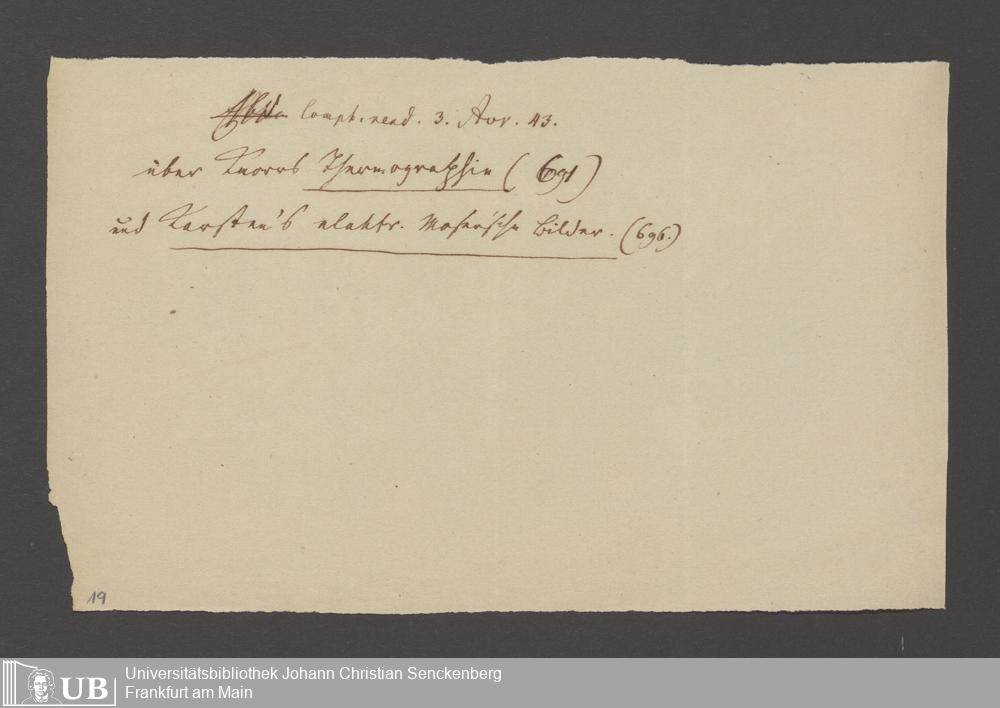 Compt. rend. 3. Avr. 43.
über Knorrs Thermographie (691)
und Karsten's elektr. Moser'sche Bilder. (696.)
19
UB
Universitätsbibliothek Johann Christian Senckenberg
Frankfurt am Main